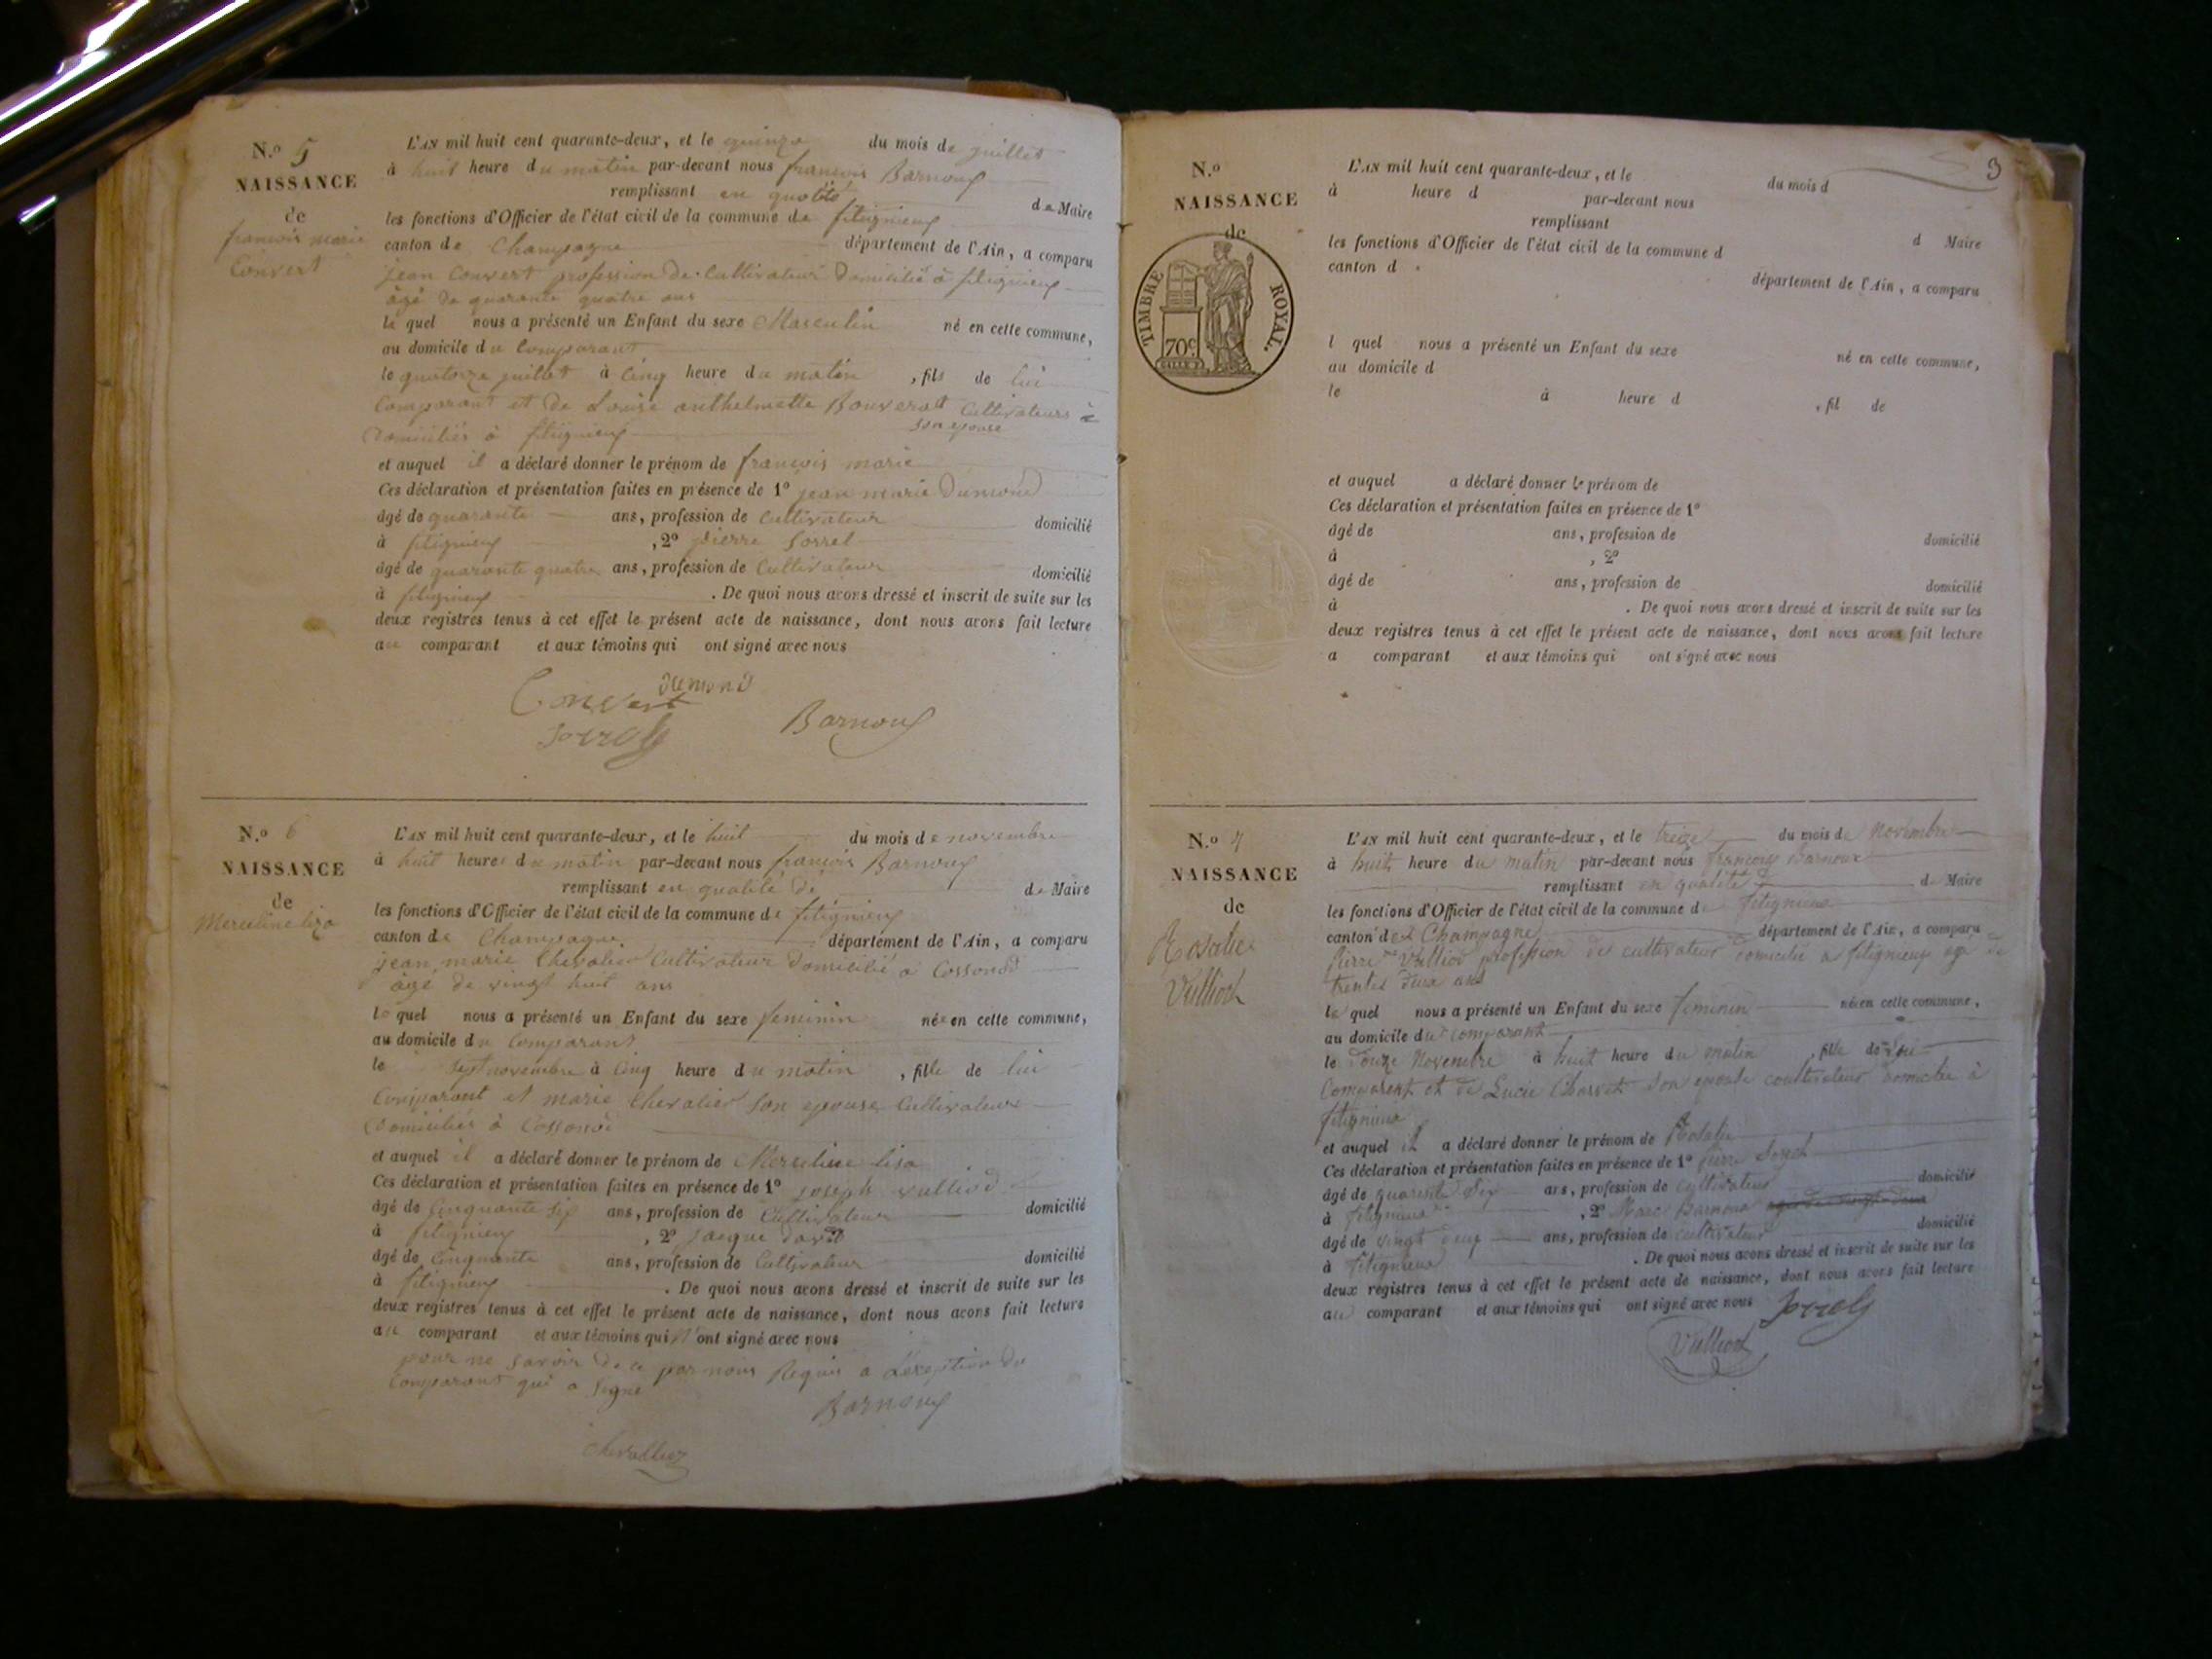 N.o 5
NAISSANCE
de
françois marie
Convert
L'AN mil huit cent quarante-deux, et le quinze du mois de juillet
à huit heure du matin par-devant nous françois Barnoux
remplissant en qualité de Maire
les fonctions d'Officier de l'état civil de la commune de fitignieux
canton de Champagne département de l'Ain, a comparu
jean Convert profession de Cultivateur domicilié à fitignieux
âgé de quarante quatre ans
le quel nous a présenté un Enfant du sexe Masculin né en cette commune,
au domicile du Comparant
le quatorze juillet à Cinq heure du matin , fils de lui
Comparant et de Louise anthelmette Bouverat Cultivateurs
son epouse
domiciliés à fitignieux
et auquel il a déclaré donner le prénom de françois marie
Ces déclaration et présentation faites en présence de 1o jean marie Dumond
âgé de quarante ans, profession de Cultivateur domicilié
à fitignieux , 2o pierre Sorrel
âgé de quarante quatre ans, profession de Cultivateur domicilié
à fitignieux . De quoi nous avons dressé et inscrit de suite sur les
deux registres tenus à cet effet le présent acte de naissance, dont nous avons fait lecture
au comparant et aux témoins qui ont signé avec nous
Dumond
Convert
Sorrel Barnoux
N.o 6
NAISSANCE
de
Merceline liza
L'AN mil huit cent quarante-deux, et le huit du mois de novembre
à huit heures du matin par-devant nous françois Barnoux
remplissant en qualité de de Maire
les fonctions d'Officier de l'état civil de la commune de fitignieux
canton de Champagne département de l'Ain, a comparu
jean marie Chevalier Cultivateur domicilié à Cossonod
âgé de vingt huit ans
le quel nous a présenté un Enfant du sexe feminin née en cette commune,
au domicile du Comparant
le sept novembre à Cinq heure du matin , fille de lui
Comparant et marie Chevalier son epouse Cultivateurs
domiciliés à Cossonod
et auquel il a déclaré donner le prénom de Merceline lisa
Ces déclaration et présentation faites en présence de 1o joseph vulliod
âgé de Cinquante six ans, profession de Cultivateur domicilié
à fitignieux , 2o jacque david
âgé de Cinquante ans, profession de Cultivateur domicilié
à fitignieux . De quoi nous avons dressé et inscrit de suite sur les
deux registres tenus à cet effet le présent acte de naissance, dont nous avons fait lecture
au comparant et aux témoins qui n'ont signé avec nous
pour ne savoir de ce par nous Requis a Léxeption du
Comparant qui a signé
Barnoux
Chevallier
3
N.o
NAISSANCE
de
TIMBRE ROYAL.
70c.
L'AN mil huit cent quarante-deux, et le du mois d
à heure d par-devant nous
remplissant d Maire
les fonctions d'Officier de l'état civil de la commune d
canton d département de l'Ain, a comparu
l quel nous a présenté un Enfant du sexe né en cette commune,
au domicile d
le à heure d , fil de
et auquel a déclaré donner le prénom de
Ces déclaration et présentation faites en présence de 1o
âgé de ans, profession de domicilié
à , 2o
âgé de ans, profession de domicilié
à . De quoi nous avons dressé et inscrit de suite sur les
deux registres tenus à cet effet le présent acte de naissance, dont nous avons fait lecture
a comparant et aux témoins qui ont signé avec nous
N.o 7
NAISSANCE
de
Rosalie
Vulliod
L'AN mil huit cent quarante-deux, et le treize du mois de Novembre
à huit heure du matin par-devant nous françois Barnoux
remplissant en qualité de Maire
les fonctions d'Officier de l'état civil de la commune de fitignieux
canton de Champagne département de l'Ain, a comparu
pierre Vulliod profession de cultivateur domicilie a fitignieux agé de
trente deux ans
le quel nous a présenté un Enfant du sexe feminin née en cette commune,
au domicile du comparant
le douze Novembre à huit heure du matin , fille de lui
Comparent et de Lucie Charvet son epouse coultivateur domicilie à
fitignieux
et auquel il a déclaré donner le prénom de Rosalie
Ces déclaration et présentation faites en présence de 1o pierre Sorrel
âgé de quarente six ans, profession de cultivateur domicilié
à fitignieux , 2o Marc Barnoux
âgé de vingt deux ans, profession de cultivateur domicilié
à fitignieux . De quoi nous avons dressé et inscrit de suite sur les
deux registres tenus à cet effet le présent acte de naissance, dont nous avons fait lecture
au comparant et aux témoins qui ont signé avec nous Sorrel
Vulliod